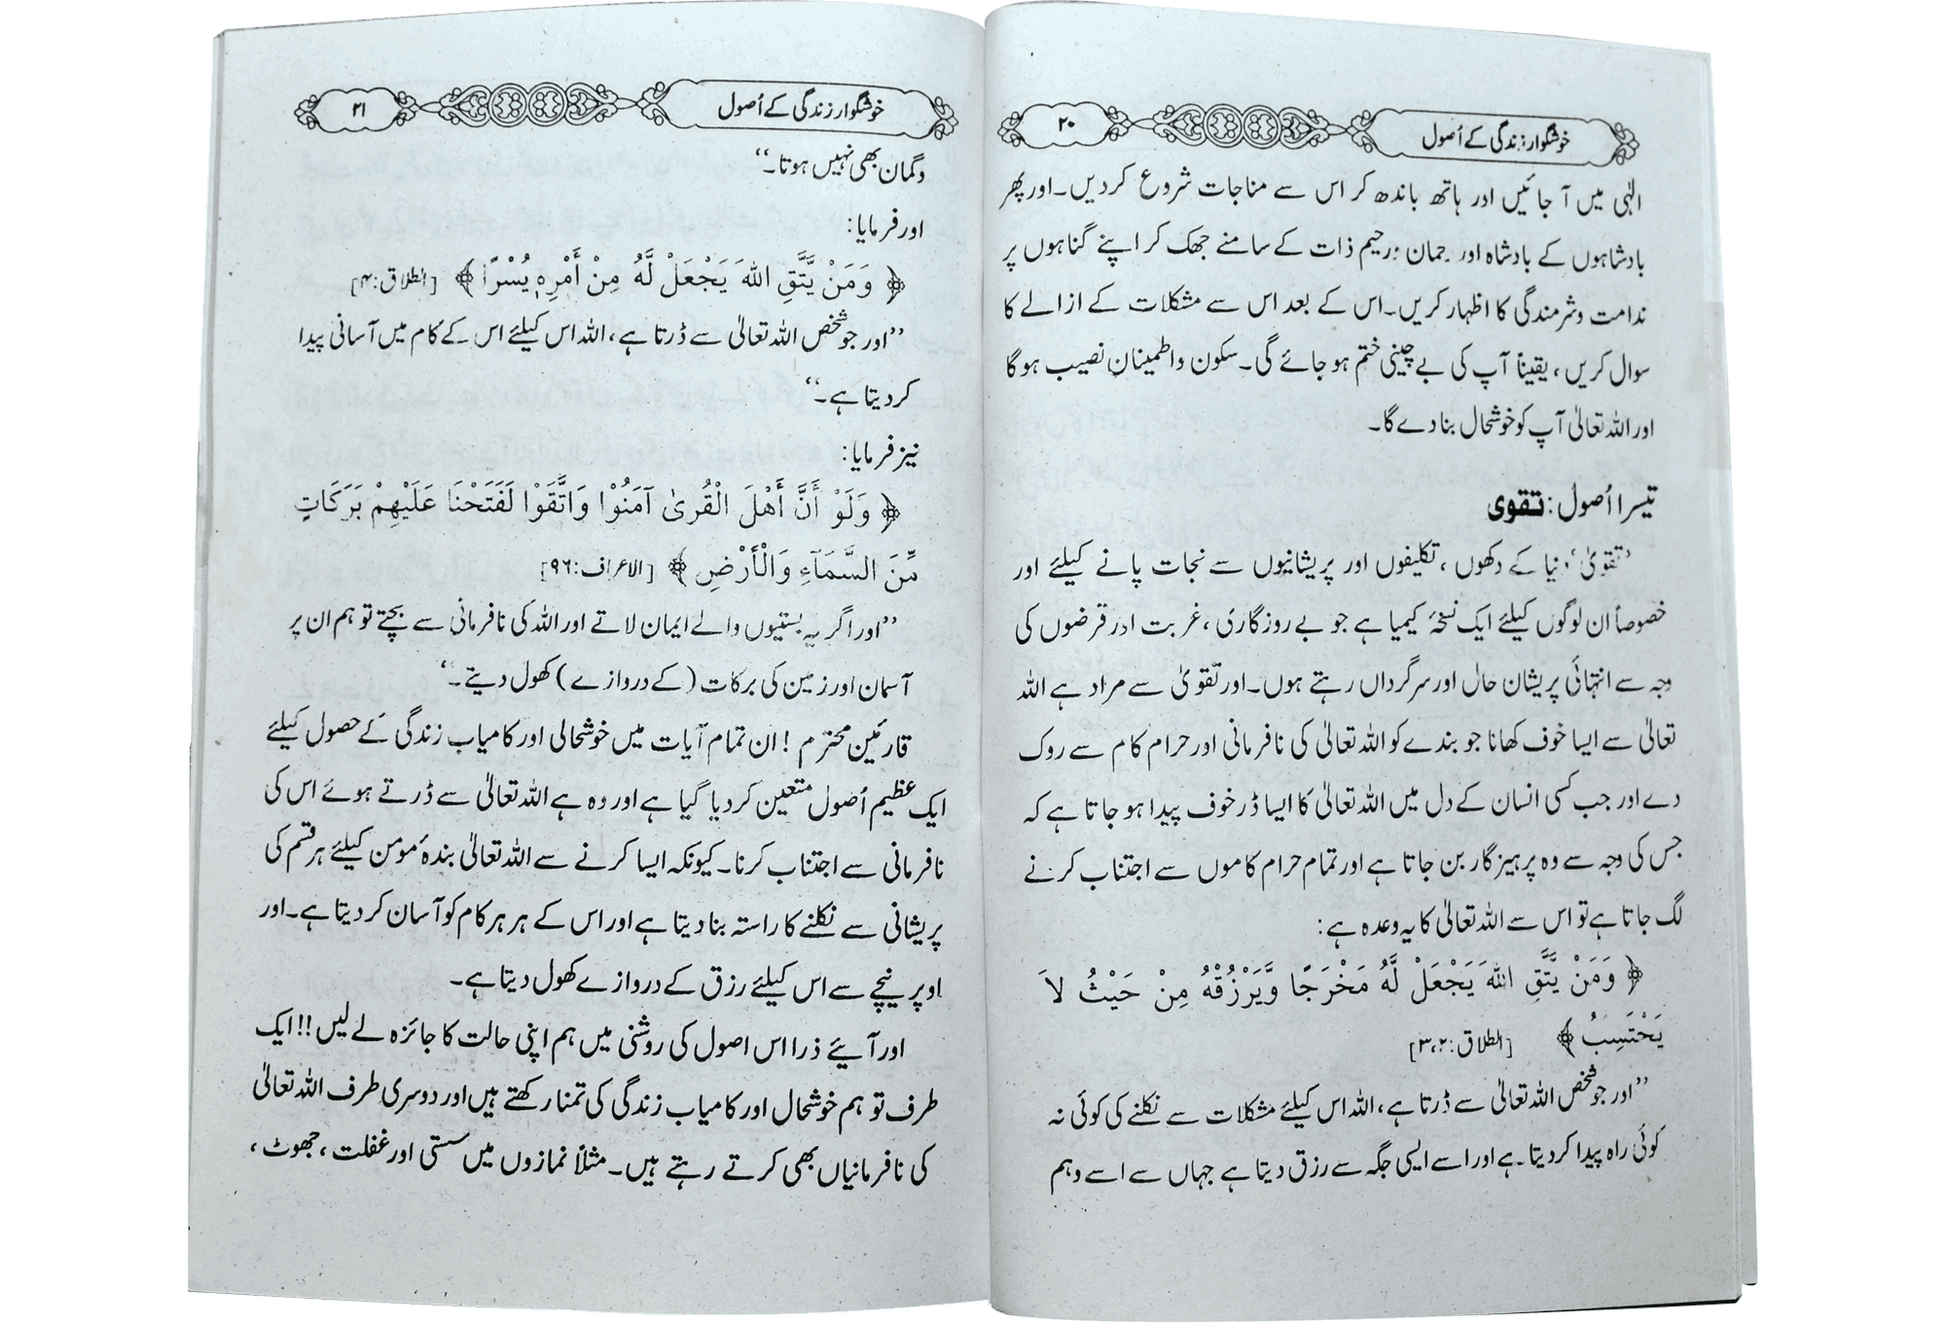 خوشگوار زندگی کے اُصول
۲۰
الٰہی میں آ جائیں اور ہاتھ باندھ کر اس سے مناجات شروع کر دیں۔ اور پھر
بادشاہوں کے بادشاہ اور رحمان ورحیم ذات کے سامنے جھک کر اپنے گناہوں پر
ندامت وشرمندگی کا اظہار کریں۔ اس کے بعد اس سے مشکلات کے ازالے کا
سوال کریں، یقیناً آپ کی بے چینی ختم ہو جائے گی۔ سکون واطمینان نصیب ہوگا
اور اللہ تعالیٰ آپ کو خوشحال بنا دے گا۔
تیسرا اُصول: تقوی
'تقویٰ' دنیا کے دکھوں، تکلیفوں اور پریشانیوں سے نجات پانے کیلئے اور
خصوصاً ان لوگوں کیلئے ایک نسخۂ کیمیا ہے جو بے روزگاری، غربت اور قرضوں کی
وجہ سے انتہائی پریشان حال اور سرگرداں رہتے ہوں۔ اور تقویٰ سے مراد ہے اللہ
تعالیٰ سے ایسا خوف کھانا جو بندے کو اللہ تعالیٰ کی نافرمانی اور حرام کام سے روک
دے اور جب کسی انسان کے دل میں اللہ تعالیٰ کا ایسا ڈر خوف پیدا ہو جاتا ہے کہ
جس کی وجہ سے وہ پرہیزگار بن جاتا ہے اور تمام حرام کاموں سے اجتناب کرنے
لگ جاتا ہے تو اس سے اللہ تعالیٰ کا یہ وعدہ ہے:
﴿ وَمَنْ يَّتَّقِ اللهَ يَجْعَلْ لَّهُ مَخْرَجًا وَّيَرْزُقْهُ مِنْ حَيْثُ لاَ
يَحْتَسِبُ ﴾ [الطلاق: ۲،۳]
''اور جو شخص اللہ تعالیٰ سے ڈرتا ہے، اللہ اس کیلئے مشکلات سے نکلنے کی کوئی نہ
کوئی راہ پیدا کر دیتا ہے اور اسے ایسی جگہ سے رزق دیتا ہے جہاں سے اسے وہم
خوشگوار زندگی کے اُصول
۲۱
وگمان بھی نہیں ہوتا۔''
اور فرمایا:
﴿ وَمَنْ يَّتَّقِ اللهَ يَجْعَلْ لَّهُ مِنْ أَمْرِهٖ يُسْرًا ﴾ [الطلاق: ۴]
''اور جو شخص اللہ تعالیٰ سے ڈرتا ہے، اللہ اس کیلئے اس کے کام میں آسانی پیدا
کر دیتا ہے۔''
نیز فرمایا:
﴿ وَلَوْ أَنَّ أَهْلَ الْقُرىٰ آمَنُوْا وَاتَّقَوْا لَفَتَحْنَا عَلَيْهِمْ بَرَكَاتٍ
مِّنَ السَّمَآءِ وَالْأَرْضِ ﴾ [الاعراف: ۹۶]
''اور اگر یہ بستیوں والے ایمان لاتے اور اللہ کی نافرمانی سے بچتے تو ہم ان پر
آسمان اور زمین کی برکات (کے دروازے) کھول دیتے۔'
قارئین محترم! ان تمام آیات میں خوشحالی اور کامیاب زندگی کے حصول کیلئے
ایک عظیم اُصول متعین کر دیا گیا ہے اور وہ ہے اللہ تعالیٰ سے ڈرتے ہوئے اس کی
نافرمانی سے اجتناب کرنا۔ کیونکہ ایسا کرنے سے اللہ تعالیٰ بندۂ مومن کیلئے ہر قسم کی
پریشانی سے نکلنے کا راستہ بنا دیتا ہے اور اس کے ہر ہر کام کو آسان کر دیتا ہے۔ اور
اوپر نیچے سے اس کیلئے رزق کے دروازے کھول دیتا ہے۔
اور آیئے ذرا اس اصول کی روشنی میں ہم اپنی حالت کا جائزہ لے لیں!! ایک
طرف تو ہم خوشحال اور کامیاب زندگی کی تمنا رکھتے ہیں اور دوسری طرف اللہ تعالیٰ
کی نافرمانیاں بھی کرتے رہتے ہیں۔ مثلاً نمازوں میں سستی اور غفلت، جھوٹ،